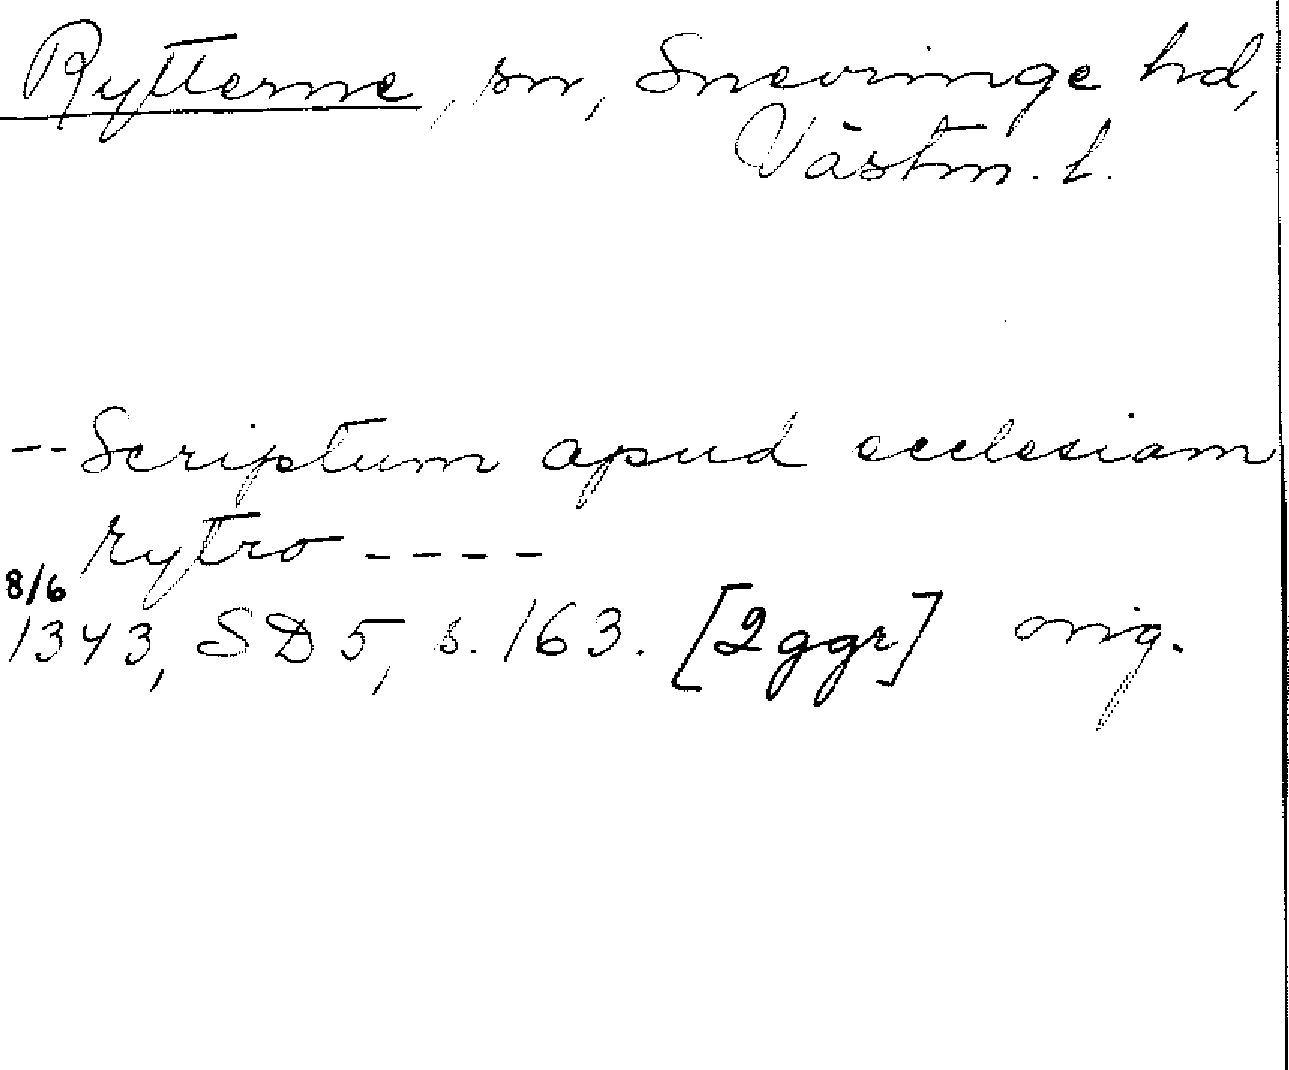 Rytterne, sn, Snevringe hd,
Västm. l.
-- Scriptum apud ecclesiam
rytro ----
8/6
1343, SD 5, s. 163. [2 ggr] orig.